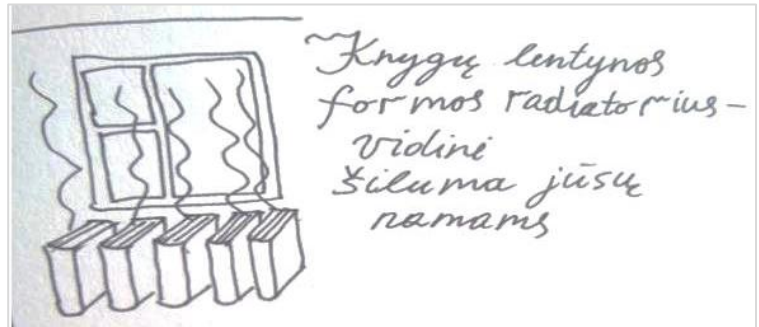 Knygų lentynos
formos radiatorius-
vidinė
šiluma jūsų
namams